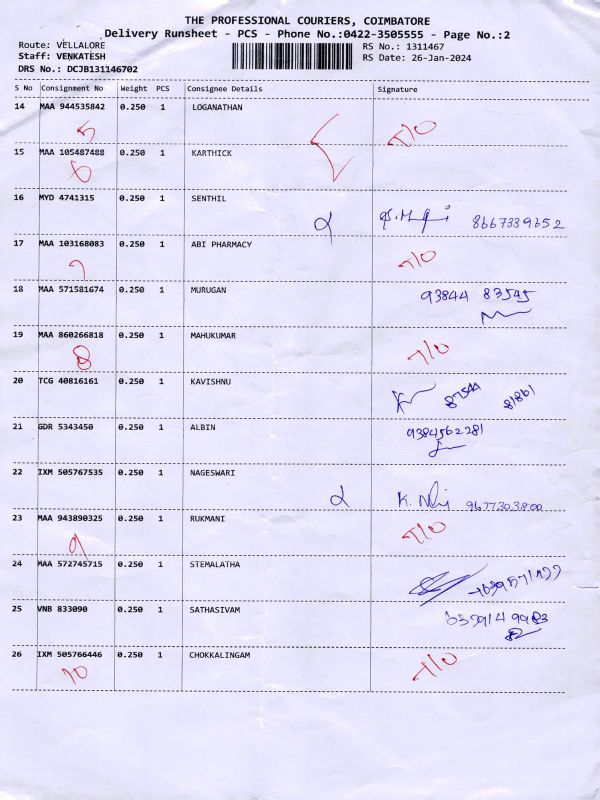 THE PROFESSIONAL COURIERS, COIMBATORE
Delivery Runsheet - PCS - Phone No.:0422-3505555 - Page No.:2
Route: VELLALORE RS No.: 1311467
Staff: VENKATESH RS Date: 26-Jan-2024
DRS No.: DCJB131146702
S No Consignment No Weight PCS Consignee Details Signature
14 MAA 944535842 0.250 1 LOGANATHAN
5 T/O
15 MAA 105487488 0.250 1 KARTHICK
6
16 MYD 4741315 0.250 1 SENTHIL
8667339652
17 MAA 103168083 0.250 1 ABI PHARMACY
7 T/O
18 MAA 571581674 0.250 1 MURUGAN
93844 83545
19 MAA 860266818 0.250 1 MAHUKUMAR
8 T/O
20 TCG 40816161 0.250 1 KAVISHNU
87544 81861
21 GDR 5343450 0.250 1 ALBIN
9384562281
22 IXM 505767535 0.250 1 NAGESWARI
9677303800
23 MAA 943890325 0.250 1 RUKMANI
9 T/O
24 MAA 572745715 0.250 1 STEMALATHA
25 VNB 833090 0.250 1 SATHASIVAM
26 IXM 505766446 0.250 1 CHOKKALINGAM
10 T/O